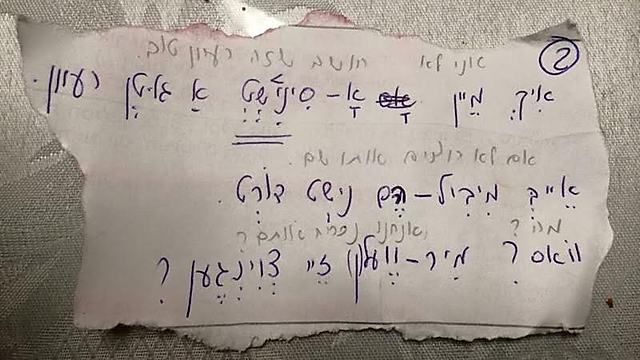 ②
אני לא חושב שזה רעיון טוב.
איך מיין אָ – סינישט אַ גוטן רעיון.
אם לא רוצים אותו שם.
אייב מיביל – הם נישט דורט.
מה? ואנחנו נכריח אותם?
וואס? מיר – וועלן זיי צווינגען?